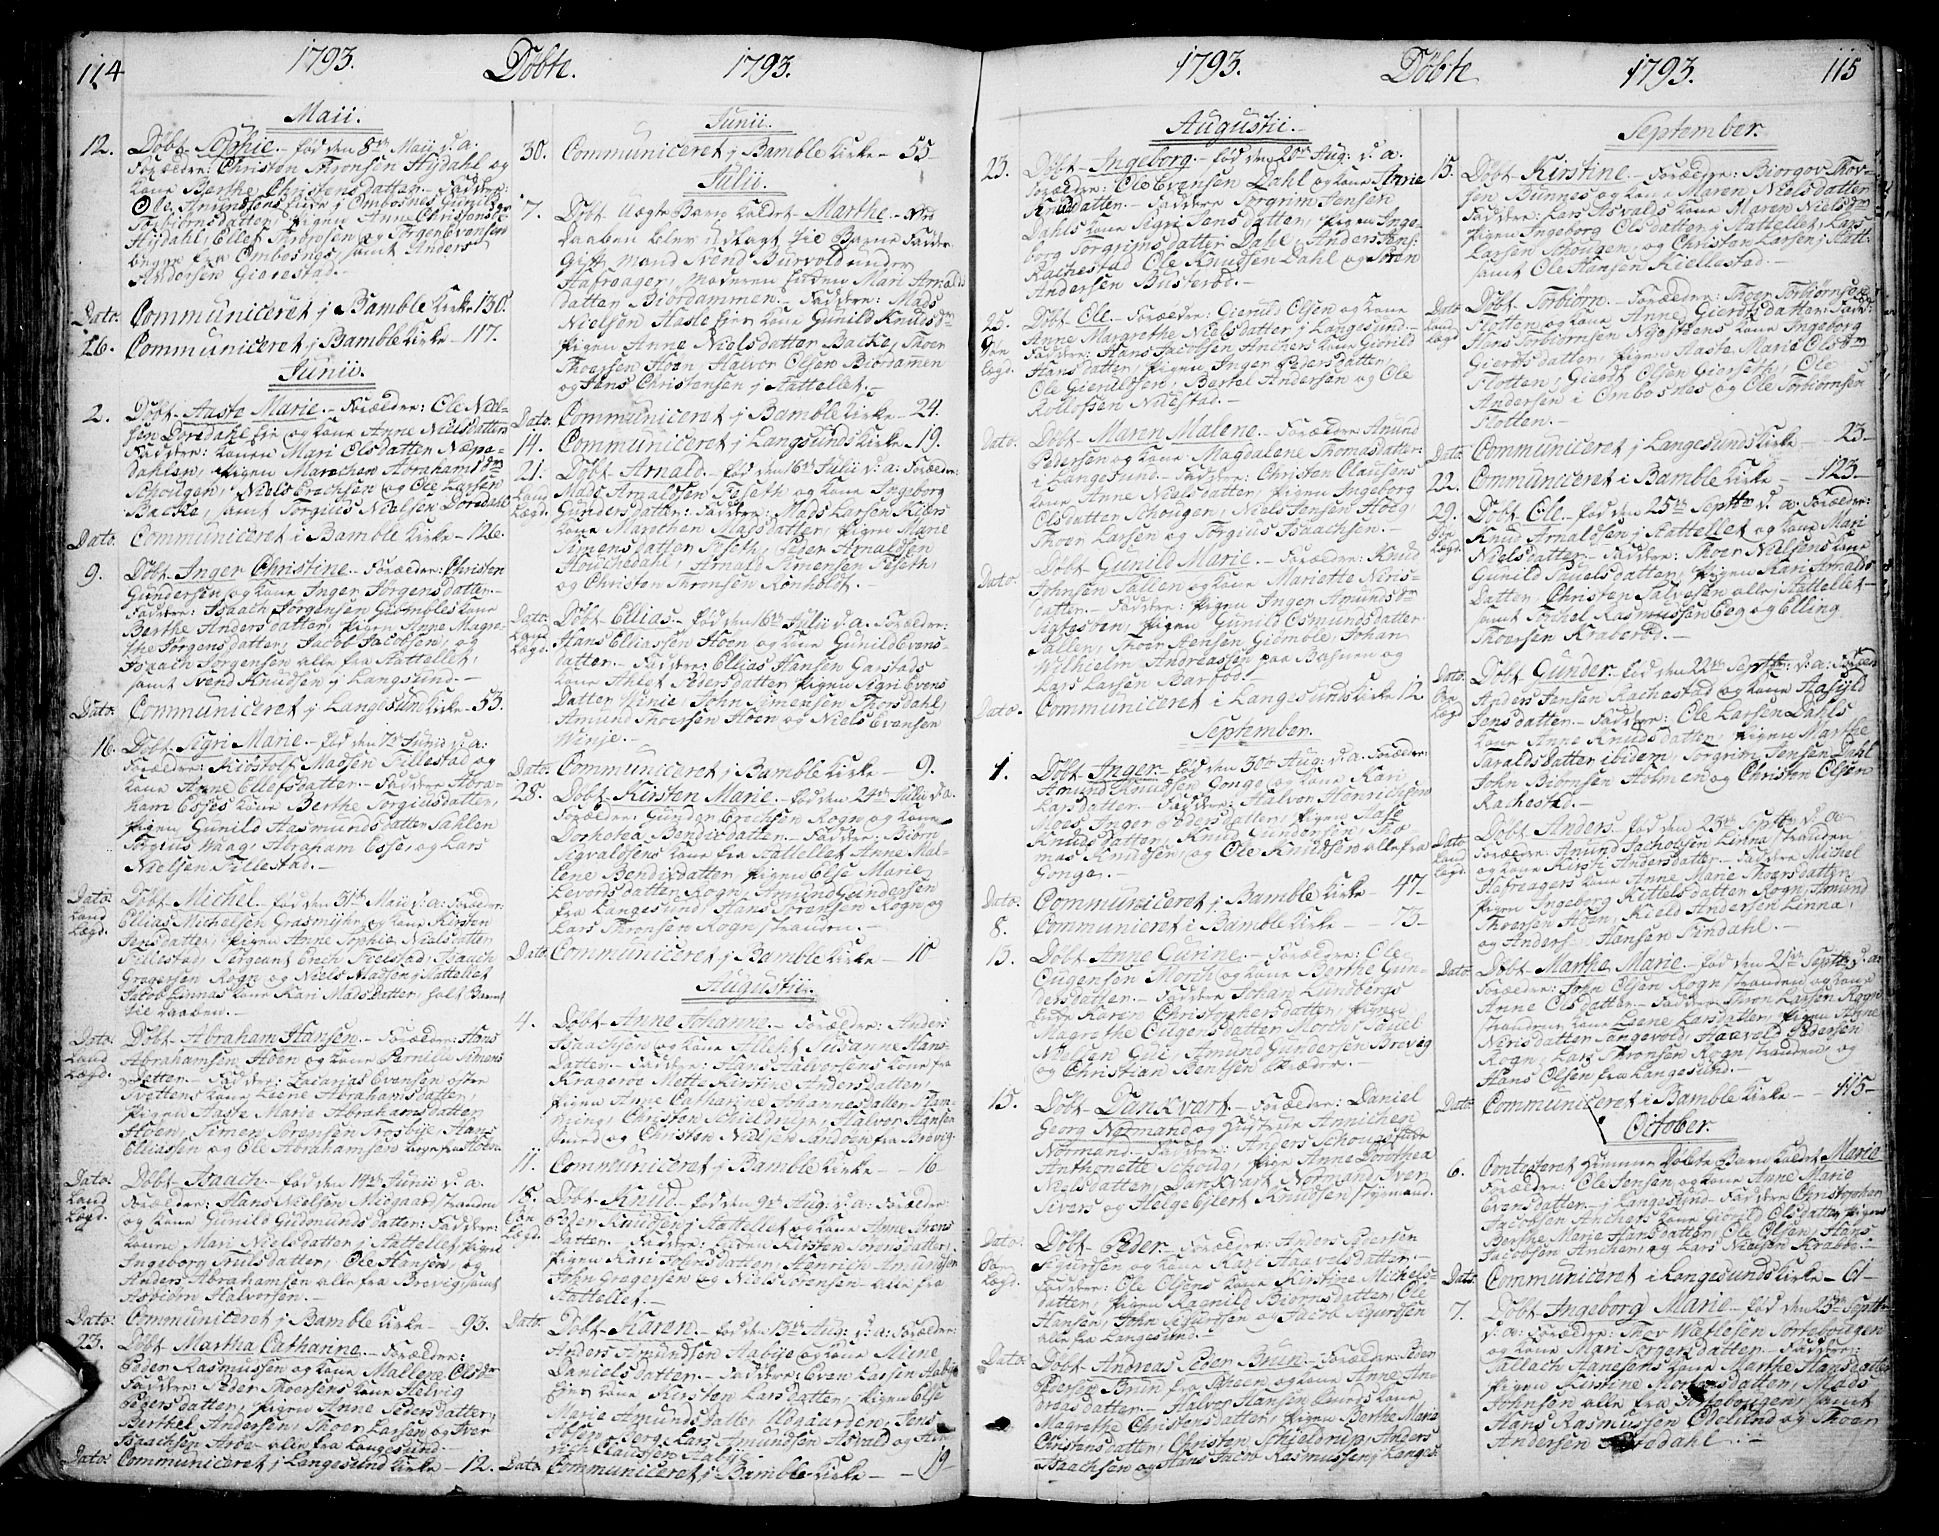 114 1793. Döbte. 1793.
Maii.
12. Döbt Sophie. fød den 8de Maii d: a:
Forældre: Christen Thronsen Hydahl og
kone Berthe Christensdatter. Faddre:
Ole Amundsens kone i Ombosnes Gunild
Torbiørnsdatter, Pigen Anne Christens
Hydahl, Ellef Thronsen og Evensen
begge fra Ombosnes, samt Anders
Andersen Gierestad.
Dato. Communiceret j Bamble Kirke 130.
26. Communiceret j Bamble Kirke 117.
Junii.
2. Döbt Aaste Marie. Forældre: Ole Niel-
sen Dordahl og kone Anne Nielsdatter
Faddre: konen Mari Olsdatter
dahlen, Pigen Marichen Abrahamsdtr
Schougen, Niels Erichsen og Ole Larsen
Bache, samt Torgius Nielsen Dordahl
Dato. Communiceret i Bamble Kirke 126.
9. Döbt Inger Christine. Forældre: Christen
Gundersen og kone Inger Jörgensdatter.
Faddre: Isaach Jorgensen Gumbles kone
Berthe Andersdatter, Pigen Anne Magre-
the Jorgensdatter, Jacob Jacobsen, og
Isaach Jorgensen alle fra Stattellet,
samt Svend Knudsen j Langesund.
Dato. Communiceret j Langesund Kirke 53.
16. Döbt Sigri Marie. fød den 7de Junii d: a:
Forældre: Kiostolf Madsen Tillestad og
kone Anne Ellefsdatter. Faddre Abra-
ham Esses kone Berthe Torgiusdatter,
Pigen Gunild Aasmundsdatter Sahlen
Torgius Waag, Abraham Esse, og Lars
Nielsen Tillestad.
Dato. Land Lægd. Döbt Michel. fød den 31te Maii d: a: Forældre:
Ellias Michelsen Grasmyhr og kone Kirsten
Jensdatter, Pigen Anne Sophie Nielsdatter
Tillestad, Sergeant Erich Tillestad, Isaach
Gregersen Rogn og Niels Madsen j Stattellet
Jacob Linnas kone Kari Madsdatter, holt Barnet
til Daaben.
Dato. Land Lægd. Döbt Abraham Hansen. Forældre: Hans
Abrahamsen Hoen og kone Pernille Simens
Datter. Faddre: Zacarias Evensen østre
Tvettens kone Leene Abrahamsdatter,
Pigen Aaste Marie Abrahamsdatter
Hoen, Simen Sörensen Trosbye, Hans
Elliassen og Ole Abrahamsen begge fra Hoen.
Dato. Land Lægd. Döbt Isaach. fød den 14de Junii d. a.
Forældre: Hans Nielsen Nisgaard, Stranden
og kone Gunild Gudmundsdatter: Faddre:
konen Mari Nielsdatter j Stattellet, Pigen
Ingeborg Truelsdatter, Ole Hansen, og
Anders Abrahamsen alle fra Brevig, samt
Asbiörn Halvorsen.
Dato. Communiceret j Bamble Kirke 93.
23. Döbt Martha Cathanne. Forældre:
Peder Rasmussen og kone Mallene Olsdtr
Faddre: Peder Thoersens kone Helvig
Pedersdatter, Pigen Anne Pedersdatter,
Berthel Andersen, Thoer Larsen og Iver
Isaachsen Aroe alle fra Langesund.
Dato. Communiceret j Langesund Kirke 12.
Junii.
30. Communiceret j Bamble Kirke 55
Julii.
7. Döbt Uægte Barn kaldet Marthe. Ved
Daaben blev udlagt til Barne Fadder
Gift Mand Svend Burvold under
Hafreager, Moderen Enken Mari Arnolds
datter Biordammen. Faddre: Mads
Nielsen Haslestier kone Gunild Knudsdtr
Pigen Anne Nielsdatter Bache, Thoer
Thoersen Hoen, Halvor Olsen Biordamen
og Jens Christensen j Stattellet.
Dato. Communiceret j Bamble Kirke 24.
14. Communiceret j Langesunds Kirke 19.
21. Land Lægd. Döbt Arnold. fød den 16de Julii d: a: Forældre:
Mads Arnoldsen Feseth og kone Ingeborg
Gundersdatter: Faddre: Mads Larsen Kiærs
kone Marichen Madsdatter, Pigen Marie
Simensdatter Feseth, Peder Arnoldsen
Houchedahl, Arnold Simensen Feseth,
og Christen Thronsen Rönholdt.
Dato. Land Lægd. Döbt Ellias. fød den 16de Julii d. a. Forældre:
Hans Elliassen Hoen og kone Gunild Evens-
datter. Faddre: Ellias Hansen Garstads
kone Ahlet Pedersdatter, Pigen Sigri Evens
Datter Winie, John Simensen Thorsdahl,
Amund Thoersen Hoen og Niels Evensen
Winje.
Dato. Communiceret j Bamble Kirke 9.
28. Döbt Kirsten Marie. fød den 24de Julii d: a.
Forældre: Gunder Erichsen Rogn og kone
Dorhotea Bendixdatter. Faddre: Biörn
Sigvaldsens kone fra Stattellet Anne Mal-
lene Bendixdatter, Pigen Else Marie
Levorsdatter Rogn, Amund Gundersen
fra Langesund, Hans Sörensen Rogn og
Lars Thronsen Rogn Stranden.
Dato. Communiceret j Bamble Kirke 10
Augustii.
4. Döbt Anne Johanne. Forældre: Anders
Isaachsen og kone Allehit Susanne Hans-
Datter. Faddre: Hans Halvorsens kone fra
Krageroe Mette Kirstine Andersdatter,
Pigen Anne Catharine Johannesdatter Flam-
ming, Christen Schieldrup, Halvor Hansen
Smed og Christen Nielsen Sandöen fra Brevig.
11. Communiceret j Bamble Kirke 16
18. Söe Lægd. Döbt Knud. fød den 9de Aug: d: a: Forældre
Peder Knudsen j Stattellet og kone Anne Arens
Datter. Faddre: Enken Kirsten Sörensdatter,
Pigen Kari Johnsdatter, Henrich Amundsen
John Gregersen og Niels Sörensen alle fra
Stattellet.
Dato. Döbt Karen. fød den 13de Aug: d: a: Forældre:
Anders Amundsen Aabye og kone Mine
Danielsdatter. Faddre: Even Larsen Aabye
kone Karen Larsdatter, Pigen Else
Marie Amundsdatter Udgaarden, Jens
Olsen Berg, Lars Amundsen Asvald og Hen-
rich Claussen Aabye.
Dato. Communiceret j Bamble Kirke 19
1793. Döbte 1793. 115
Augustii.
23. Döbt Ingeborg. fød den 20de Aug: d: a:
Forældre: Ole Evensen Dahl og kone Annie
Knudsdatter. Faddre Torgrim Jensen
Dahls kone Sigri Jensdatter, Pigen Inge-
borg Torgrimsdatter Dahl, Anders Jens:
Rachestad Ole Knudsen Dahl og Sören
Andersen Busteröd.
25. Söe Lægd. Döbt Ole. Forældre: Gierulf Olsen og kone
Anne Margrethe Nielsdatter j Langesund.
Faddre: Hans Jacobsen Anchers kone Giörild
Hansdatter, Pigen Inger Pedersdatter,
Ole Gierulfsen, Bertel Andersen og Ole
Rollofsen Nidestad.
Dato. Döbt Maren Malene. Forældre: Amund
Pedersen og kone Magdalene Thomasdatter
j Langesund. Faddre: Christen Clausens
kone Anne Nielsdatter, Pigen Ingeborg
Olsdatter Schougen, Niels Jensen Hoeg,
Thoer Larsen og Torgius Isaachsen.
Dato. Döbt Gunild Marie. Forældre: Knud
Johnsen Sallen og kone Mariette Niels-
datter. Faddre: Pigen Inger Amundsdtr
Pigen Gunild Osmundsdatter
Sallen, Thoer Jensen Giömble, Johan
Wilhielm Andreassen paa Basnen og
Lars Larsen Aarfod.
Dato. Communiceret i Langesunds Kirke 12
September.
1. Döbt Inger. fød den 30te Aug: d: a: Forældre:
Amund Knudsen Gonge og kone Kari
Larsdatter. Faddre: Halvor Henrichsen
Moes, Inger Pedersdatter, Pigen Aase
Knudsdatter, Knud Gundersen, Tho-
mas Knudsen, og Ole Knudsen alle fra
Gonge.
Dato. Communiceret j Bamble Kirke 47
8. Communiceret i Bamble Kirke 73
13. Döbt Anne Gurine. Forældre: Ole
Eugensen Morch og kone Berthe Gun-
dersdatter. Faddre Johan Lundbergs
Enke Karen Christophersdatter, Pigen
Magrethe Eugensdatter Morch, Povel
Nielsen Gui, Amund Gundersen Brevig
og Christian Bentsen Skræder.
15. Döbt Dankvart. Forældre: Daniel
Georg Normand og Hustrue Annichen
Normand. Faddre: Anders Schougs Frue
Anthonette Schoug, Pige Anne Dorothea
Nielsdatter, Dankvart Normand, Iver
Sivers og Helge Eiert Knudsen Stymand.
Dato. Söe Lægd. Döbt Peder. Forældre: Anders Pedersen
Sigursen og kone Kari Haavelsdatter.
Faddre: Ole Olsens kone Kirstine Michels-
datter, Pigen Ragnild Biörnsdatter, Ole
Hansen, John Sigurtsen og Jacob Sigurtsen
alle fra Langesund.
Dato. Döbt Andreas Peder Brun. Forældre: Peder
Pedersen Brun fra Scheen og kone Anne An-
dreasdatter. Halvor Hansen Smeds kone
Magrethe Christensdatter, Pigen Berthe Marie
Christensdatter, Christen Schieldrup, Anders
Isaachsen og Hans Jacob Rasmussen, j Langes:
September.
15. Döbt Kirstine. Forældre: Biörgov Thor-
sen Bunnes og kone Maren Nielsdatter
Faddre: Lars Asvalds kone Maren Nielsdtr
Pigen Ingeborg Olsdatter j Stattellet, Lars
Larsen Schougen, og Christen Larsen j Statt:
samt Ole Hansen Kiellestad.
Dato. Land Lægd. Döbt Torbiörn. Forældre: Thoer Torbiörnsen
Flotten og kone Anne Gierdsdatter: Faddr:
Hans Torbiörnsen kone Ingeborg
Gierdsdatter, Pigen Aaste Marie Olsdtr
Flotten, Gierdt Olsen Gierseth, Ole
Andersen i Ombosnes og Ole Torbiörnsen
Flotten.
Dato. Communiceret j Langesunds Kirke 23
22. Communiceret i Bamble Kirke 123
29. Söe Lægd. Döbt Ole. fød den 25de Septbr d. a: Forældre:
Knud Arnoldsen j Stattellet og kone Mari
Nielsdatter. Faddre: Thoer Nielsens kone
Gunild Povelsdatter, Pigen Kari Arnolds
Datter, Christen Salvesen alle j Stattellet
samt Torchel Rasmussen Eeg og Elling
Thoersen Kraberöd.
Dato. Söe Lægd. Döbt Gunder. fød den 22de Septbr: d: a: Foræn
Anders Jensen Rachestad og kone Aasild
Jensdatter. Faddre: Ole Larsen Dahls
kone Anne Knudsdatter, Pigen Marthe
Taraldsdatter ibidem, Torgrim Jensen Dahl
John Biörnsen Holmen og Christen Olsen
Rachestad.
Dato. Land Lægd. Döbt Anders. fød den 23de Septbr d. a
Forældre: Amund Jacobsen Linna Stranden
og kone Kirsti Andersdatter. Faddre Michel
Hafreagers kone Anne Marie Thoersdatter
Pigen Ingeborg Kittelsdatter Rogn, Amund
Thoersen Hoen, Kield Andersen Linna,
og Anders Hansen Findahl.
Dato. Döbt Marthe Marie. fød den 21de Septbr d. a:
Forældre: John Olsen Rogn Stranden og kone
Anne Olsdatter. Faddre Larsen Rogn
Strandens kone Leene Larsdatter, Pigen Anne
Nerisdatter Langevold, Haavold Pedersen
Rogn, Lars Thronsen Rogn Stranden, og
Hans Olsen fra Langesund.
Dato. Communiceret i Bamble Kirke 115
October.
6. Confirmeret hiemme Döbte Barn kaldet Marie
Forældre: Ole Jensen og kone Anne Marie
Evensdatter j Langesund. Faddre Christopher
Jacobsen Anchers kone Giörild Olsdatter, Pigen
Berthe Marie Hansdatter, Ole Olsen, Hans
Jacobsen Ancher, og Lars Nielsen Kraboe.
Dato. Communiceret i Langesunds Kirke 61
7. Döbt Ingeborg Marie. fød den 25de Septbr
d: a: Forældre: Thor Wetlesen Fortebougen
og kone Mari Torgersdatter. Faddre:
Tallach Hanesens kone Marthe Hansdatter
Pigen Kirstine Mortensdatter, Mads
Johnsen alle fra Fortebougen, samt
Hans Rasmussen Ödelund og Thoer
Andersen Dorddahl.